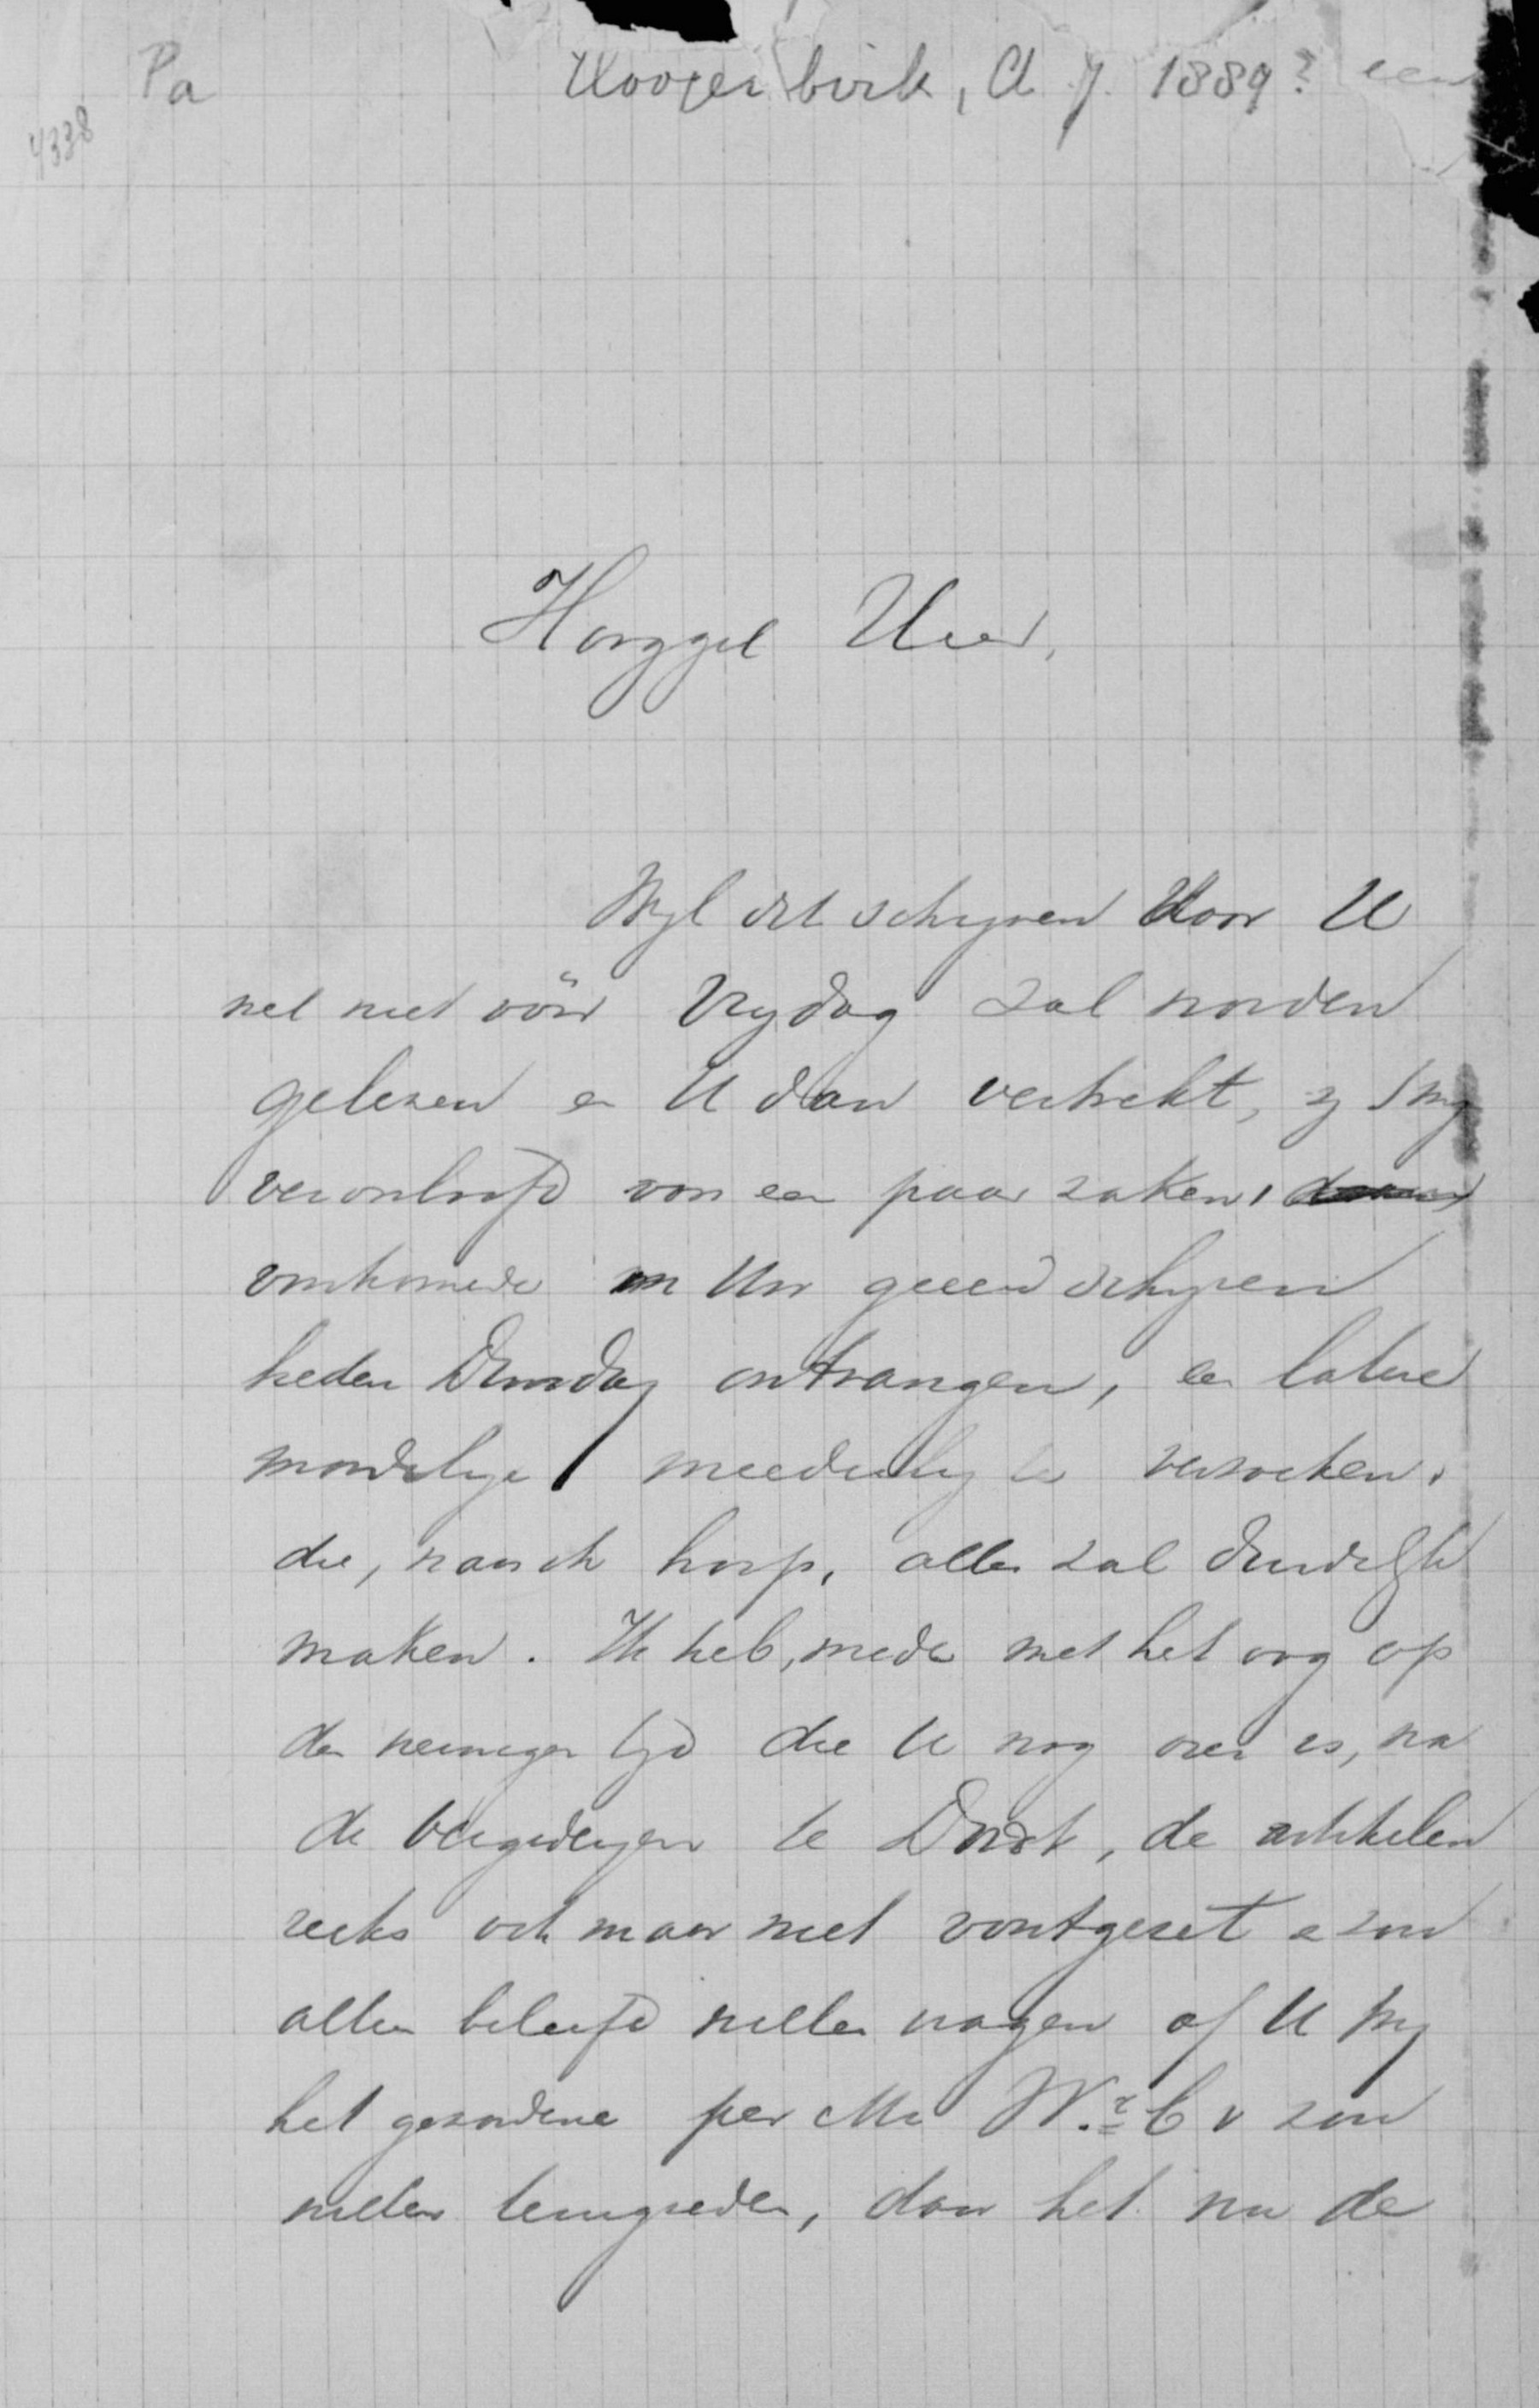 Pa
Hoogenbirk, A J. 1889?
4338
Hooggel Heer,
Wyl dit schryven door U
wel niet vóór Vrydag zal worden
gelezen en U dan vertrekt, zy 't my
veroorloofd voor een paar zaken,
voorkomende in Uw geeerd schryven
heden Dinsdag ontvangen, een latere
mondelinge meedeeling te verzoeken,
die, naar ik hoop, alles zal duidelyk
maken. Ik heb, mede met het oog op
den weinigen tyd die U nog over is, na
de vergaderingen te Dordt, de artikelen
reeks ook maar niet voortgezet en zou
alleen beleefd willen vragen of U my
het gezondene per M W. C v zou
willen terugzenden, daar het nu de